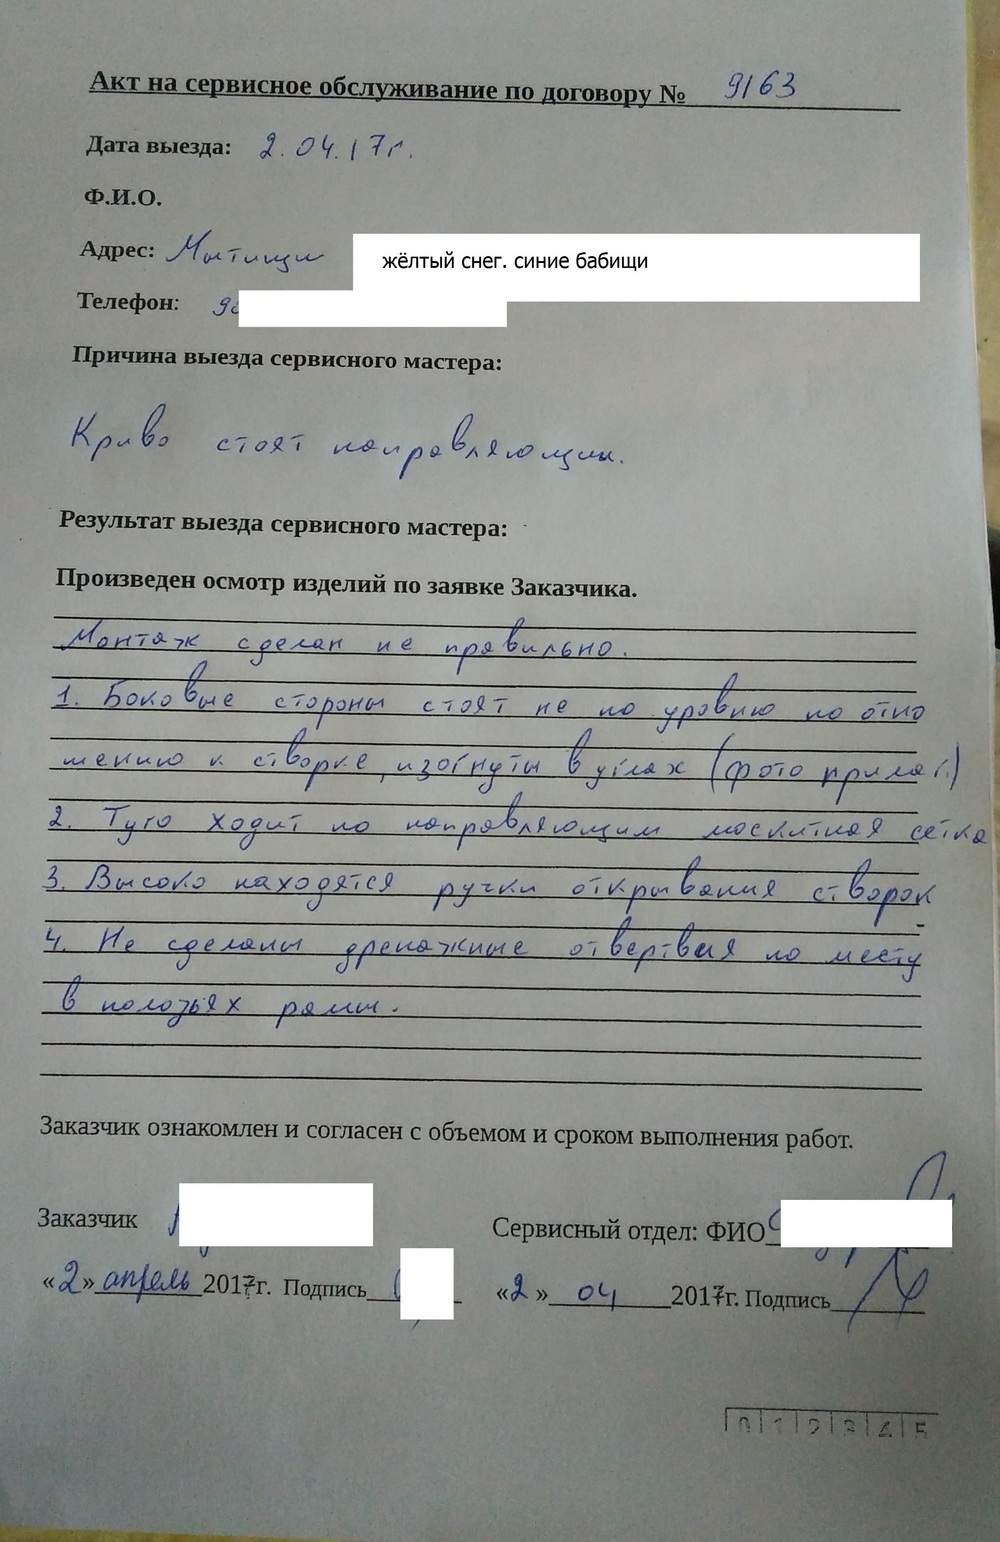 Акт на сервисное обслуживание по договору № 9163
Дата выезда: 2.04.17г.
Ф.И.О.
Адрес: Мытищи жёлтый снег. синие бабищи
Телефон: 98
Причина выезда сервисного мастера:
Криво стоят направляющии.
Результат выезда сервисного мастера:
Произведен осмотр изделий по заявке Заказчика.
Монтаж сделан не правильно.
1. Боковые стороны стоят не по уровню по отно
шению к створке, изогнуты в углах (фото прилаг.)
2. Туго ходит по направляющим москитная сетка
3. Высоко находятся ручки открывания створок
4. Не сделаны дренажные отвертвия по месту
в полозьях рамы.
Заказчик ознакомлен и согласен с объемом и сроком выполнения работ.
Заказчик
Сервисный отдел: ФИО
«2» апрель 2017г. Подпись
«2» 04 2017г. Подпись
0 1 2 3 4 5